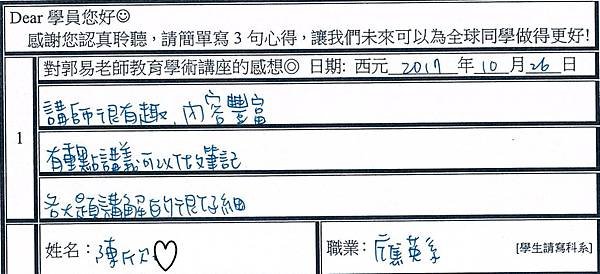 Dear 學員您好☺
感謝您認真聆聽，請簡單寫 3 句心得，讓我們未來可以為全球同學做得更好!
對郭易老師教育學術講座的感想◎ 日期: 西元 2017 年 10 月 26 日
1
講師很有趣、內容豐富
有重點講義可以做筆記
各大題講解的很仔細
姓名：陳 ♡
職業：應英系 [學生請寫科系]